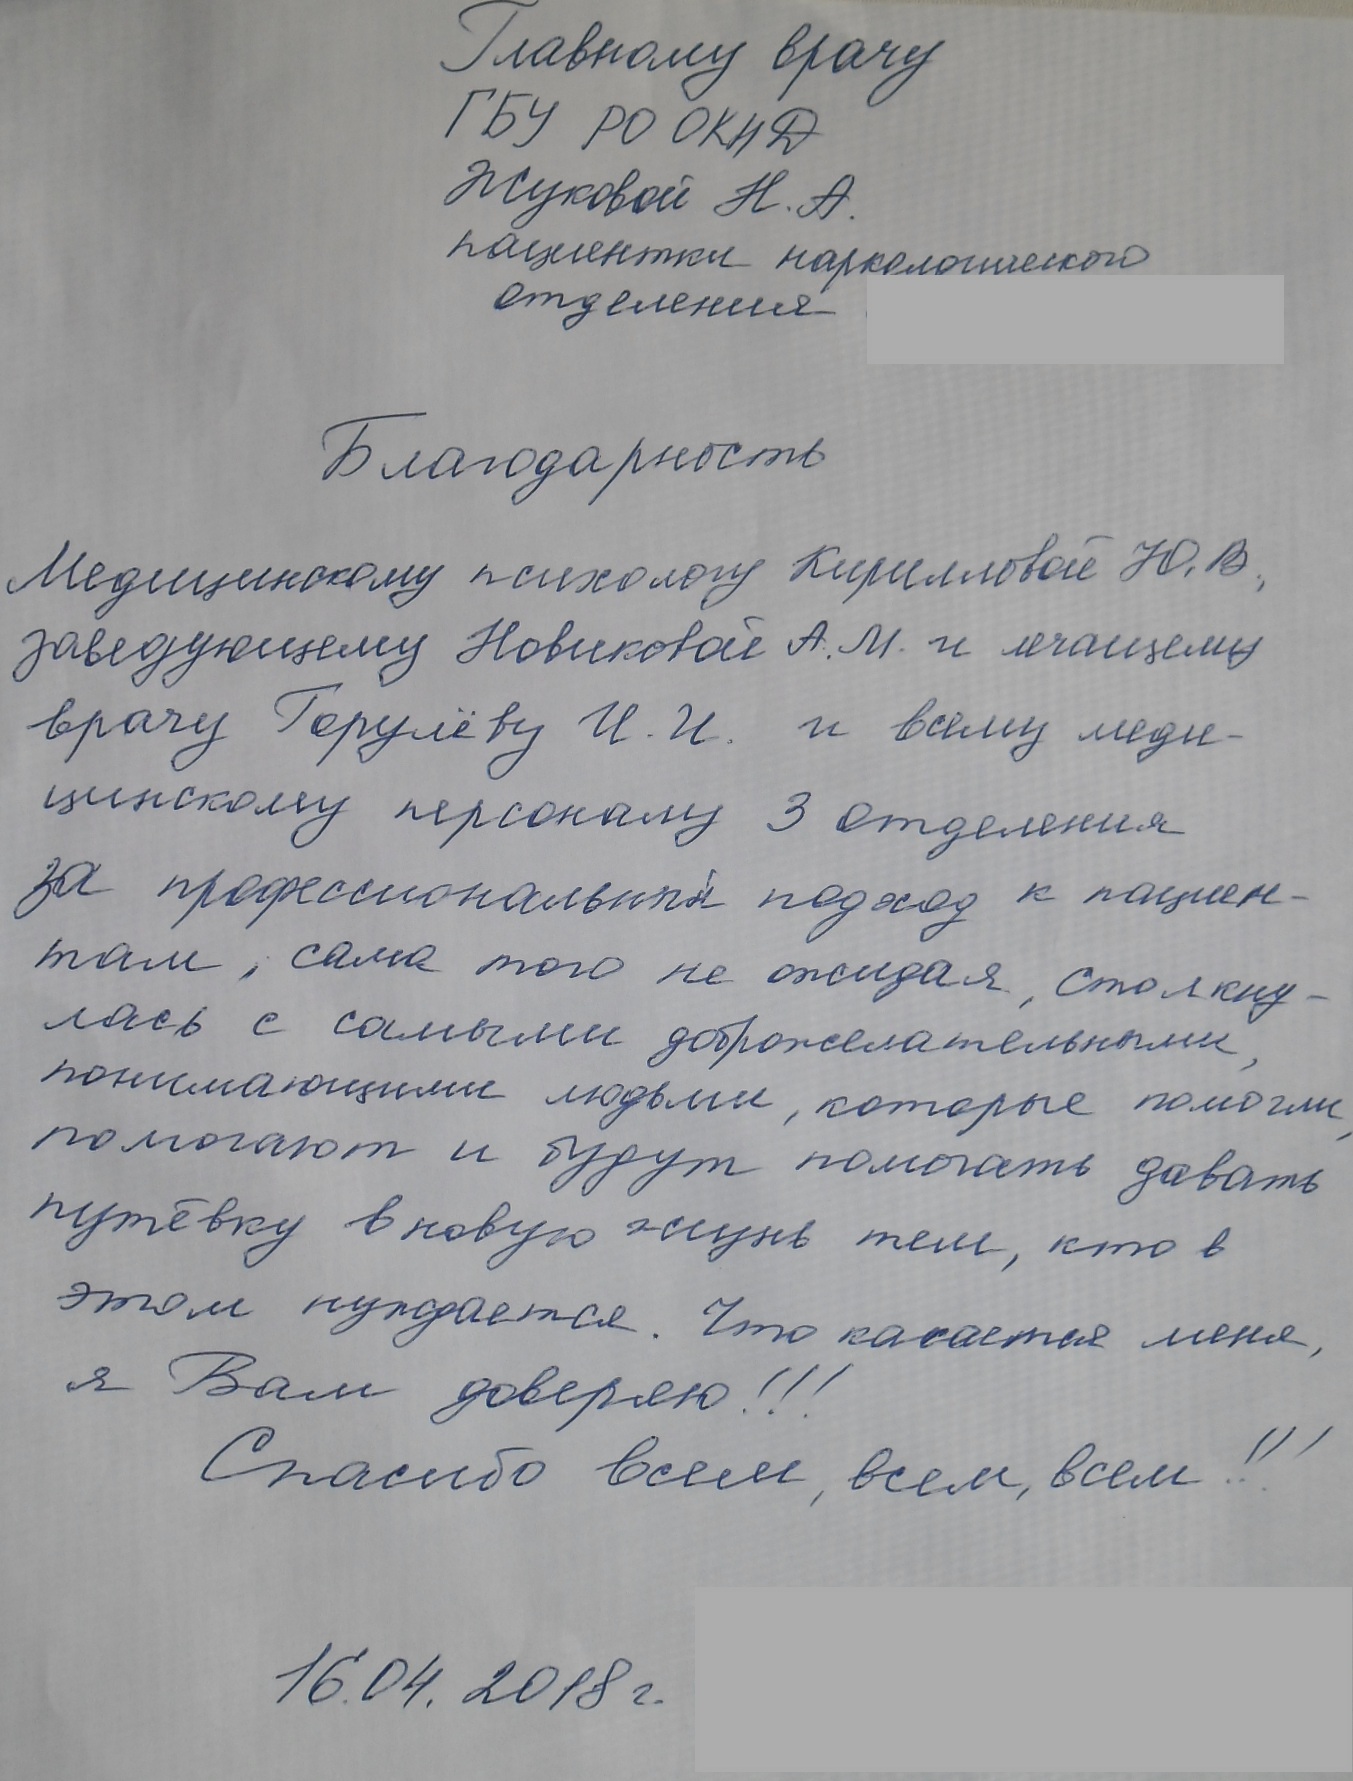 Главному врачу
ГБУ РО ОКНД
Жуковой Н.А.
пациентки наркологического
отделения
Благодарность
Медицинскому психологу Кирилловой Ю.В.,
заведующему Новиковой А.М. и лечащему
врачу Горулёву И.И. и всему меди-
цинскому персоналу 3 отделения
за профессиональный подход к пациен-
там, сама того не ожидая, столкну-
лась с самыми доброжелательными,
понимающими людьми, которые помогли,
помогают и будут помогать давать
путёвку в новую жизнь тем, кто в
этом нуждается. Что касается меня,
я Вам доверяю!!!
Спасибо всем, всем, всем!!!
16.04.2018 г.